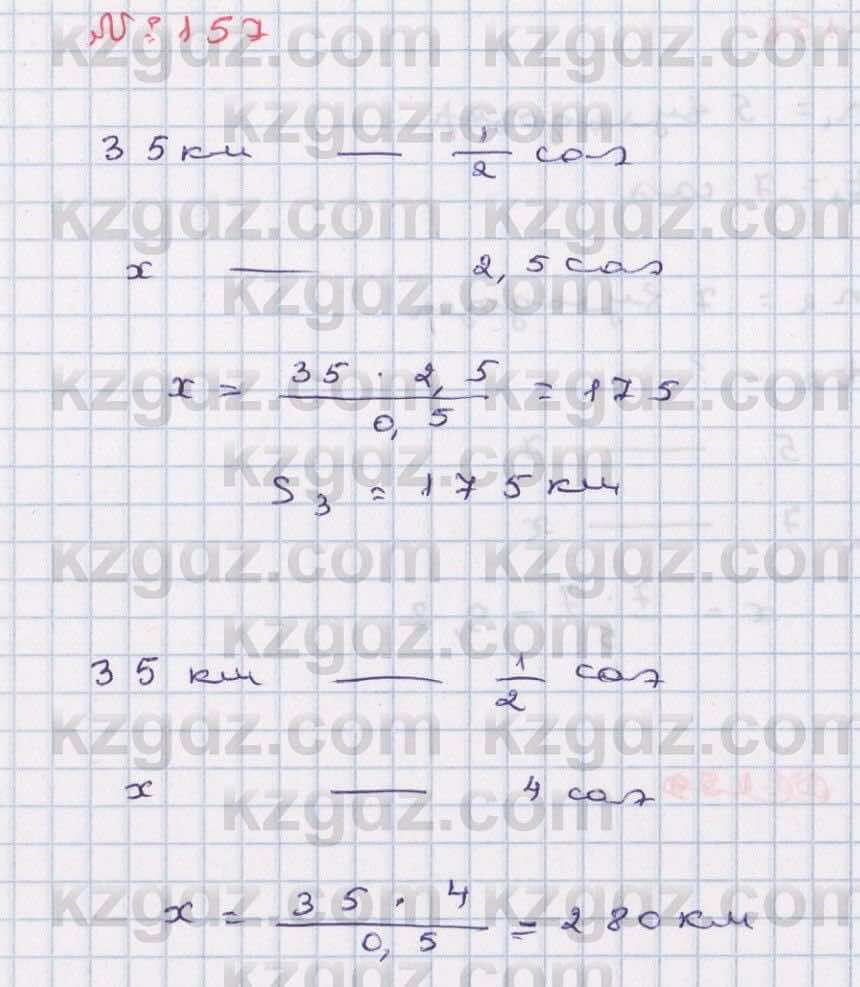 №:157
35 км — 1/2 саг
x — 2,5 саг
x = 35 · 2,5 / 0,5 = 175
S3 = 175 км
35 км — 1/2 саг
x — 4 саг
x = 35 · 4 / 0,5 = 280 км
kzgdz.com